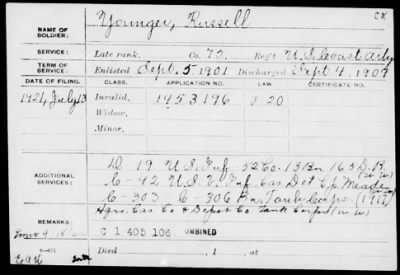 Younger, Russell CX
NAME OF SOLDIER:
SERVICE: Late rank, Co. 75, Reg't U.S. Coast Arty
TERM OF SERVICE: Enlisted Sept. 5 1901 Discharged Sept 4, 1907
DATE OF FILING. CLASS. APPLICATION NO. LAW CERTIFICATE NO.
1921, July 13 Invalid, 1453196 20
Widow,
Minor,
D-19 U.S. Inf 52 Co. 13 Bn. 163 D.B.
ADDITIONAL SERVICES: C-42 U.S. Inf Cas Det Cp Meade
C-303 C-306 Bn. Tank Corps.
Hqrs. Cas Co & Depot Co Tank Corps
REMARKS:
C 1 405 106
Died , 1 , at